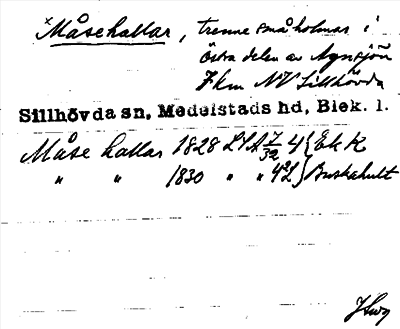 ×Måsehallar, trenne små holmar i
östra delen av Agnsjön
7 km NV Sillhövda
Sillhövda sn, Medelstads hd, Blek. l.
Måse hallar 1828 LSA 7/32 4 } Ek K
" " 1830 " " 42 } Buskahult